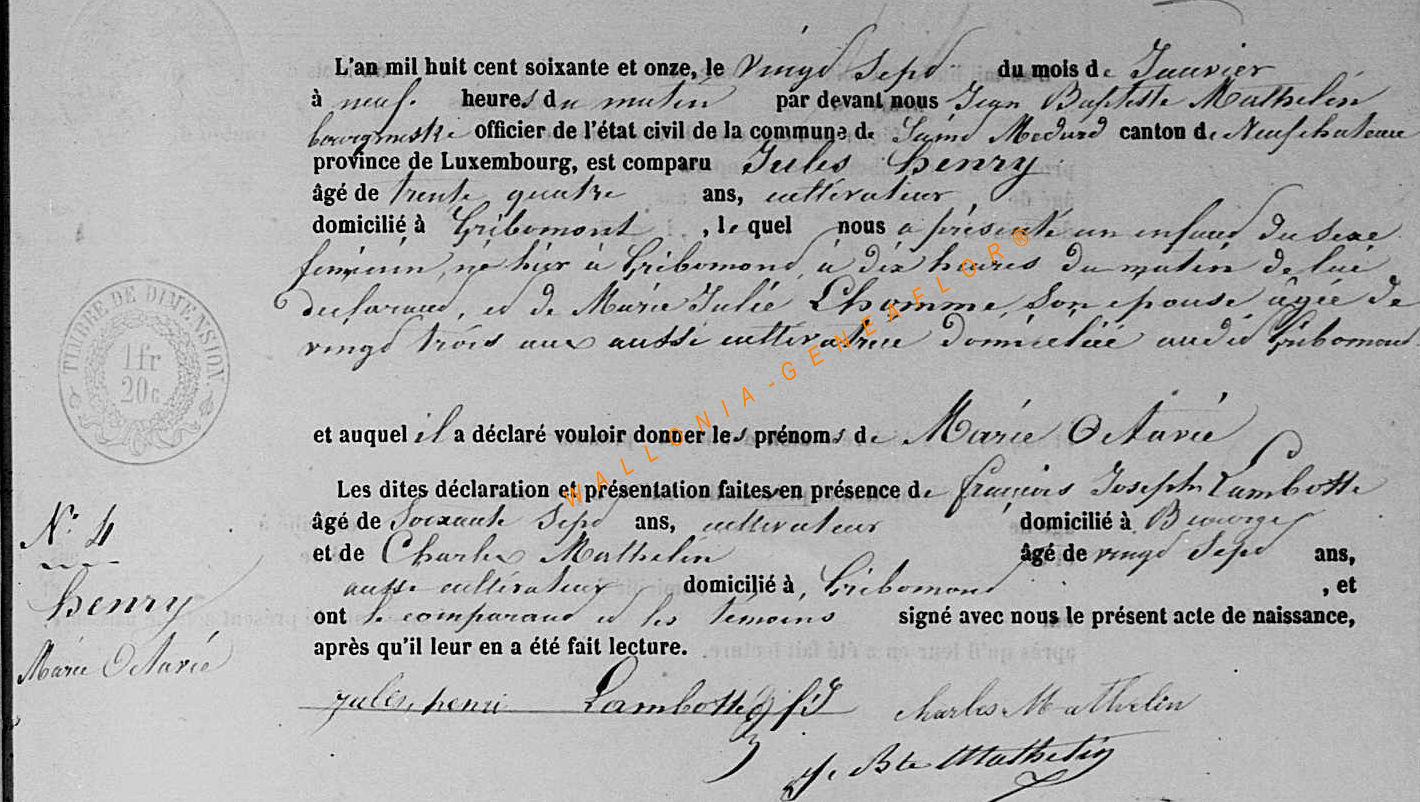 L'an mil huit cent soixante et onze, le vingt Sept du mois de Janvier
à neuf heures du matin par devant nous Jean Baptiste Mathelin
bourgmestre officier de l'état civil de la commune de Saint Medard canton de Neufchateau
province de Luxembourg, est comparu Jules henry
âgé de trente quatre ans, cultivateur,
domicilié à Gribomont, le quel nous a présenté un enfant du sexe
feminin, né hier à Gribomont, à dix heures du matin de lui
declarant, et de Marie Julie Lhomme, Son epouse âgée de
vingt trois ans aussi cultivatrice domiciliée audit Gribomont
et auquel il a déclaré vouloir donner les prénoms de Marie Octavie
Les dites déclaration et présentation faites en présence de françois Joseph Lambotte
âgé de Soixante Sept ans, cultivateur domicilié à
et de Charles Mathelin âgé de vingt Sept ans,
aussi cultivateur domicilié à, Gribomont, et
ont le comparant et les témoins signé avec nous le présent acte de naissance,
après qu'il leur en a été fait lecture.
Jules henri Lambotte fJ Charles Mathelin
J. Bte Mathelin
N° 4
henry
Marie Octavie
TIMBRE DE DIMENSION.
1 fr
20 c
WALLONIA-GENEAFLOR®